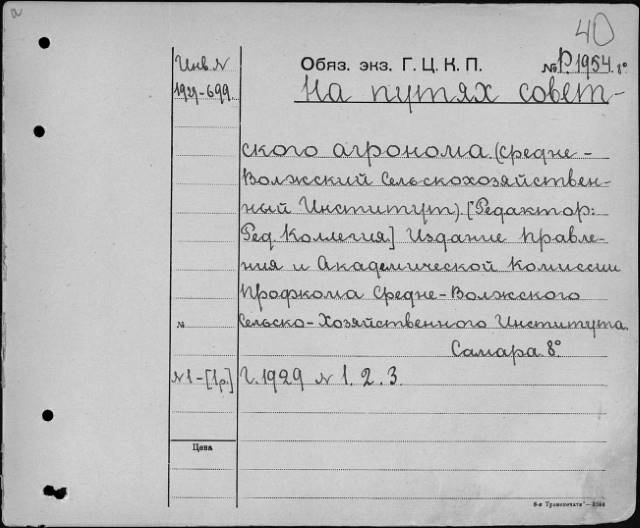 40
Инв. N
1929-699.
Обяз. экз. Г. Ц. К. П.
№ Р.1954. 8°
На путях совет-
ского агронома. (Средне-
Волжский Сельскохозяйствен-
ный Институт). [Редактор:
Ред. Коллегия.] Издание Правле-
ния и Академической Комиссии
Профкома Средне-Волжского
№
Сельско-Хозяйственного Института.
Самара. 8°.
N 1-[1р.]
Г. 1929 N 1. 2. 3.
Цена